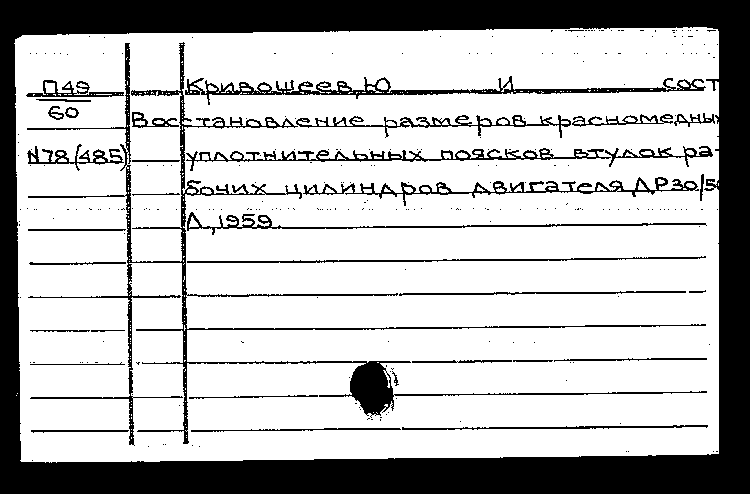 П49 Кривошеев, Ю И сост
60
Восстановление размеров красномедны
N78(485) уплотнительных поясков втулок ра-
бочих цилиндров двигателя ДР30/50
Л., 1959.